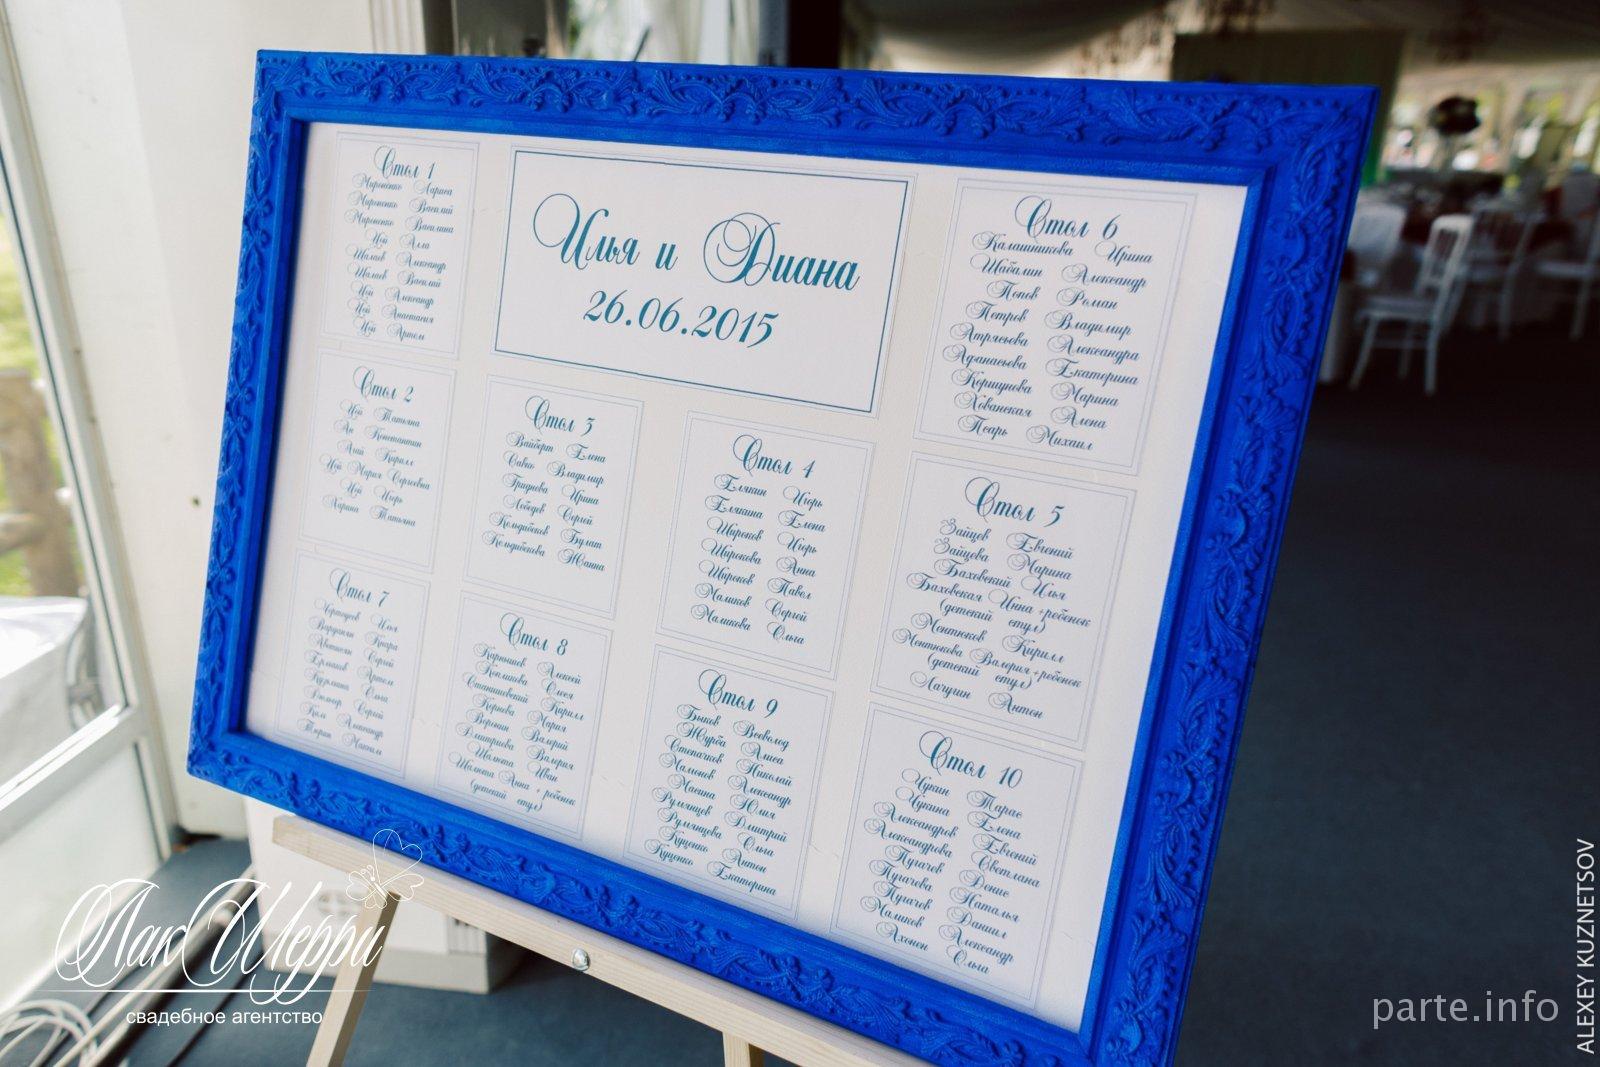 Илья и Диана
26.06.2015
Стол 1
Мироненко Лариса
Мироненко Василий
Мироненко Василина
Цой Алла
Шалаев Александр
Шалаев Василий
Цой Александр
Цой Анастасия
Цой Артем
Стол 2
Цой Татьяна
Ан Константин
Кирилл
Цой Мария Сергеевна
Цой Игорь
Харина Татьяна
Стол 3
Вайберт Елена
Савко Владимир
Гриднева Ирина
Лебедев Сергей
Кольдибеков Булат
Кольдибекова Жанна
Стол 4
Елякин Игорь
Елякина Елена
Широков Игорь
Широкова Анна
Широков Павел
Маликов Сергей
Маликова Ольга
Стол 5
Зайцев Евгений
Зайцева Марина
Баховский Илья
Баховская Инна +ребенок
(детский стул)
Ментюков Кирилл
Ментюкова Валерия+ребенок
(детский стул)
Лачугин Антон
Стол 6
Калашникова Ирина
Шабалин Александр
Попов Роман
Петров Владимир
Атрясьева Александра
Афанасьева Екатерина
Коршунова Марина
Хованская Алена
Псарь Михаил
Стол 7
Илья
Сергей
Ермаков Артем
Кузьмина Ольга
Сергей
Ким Александр
Тюрин Максим
Стол 8
Карнышев Алексей
Копликова Олеся
Станишевский Кирилл
Корнева Мария
Воронин Валерий
Дмитриева Валерия
Шалюта Иван
Шалюта Анна + ребенок
(детский стул)
Стол 9
Быков Всеволод
Журба Алиса
Степачков Николай
Мамонов Александр
Масина Юлия
Румянцев Дмитрий
Румянцева Ольга
Куценко Антон
Куценко Екатерина
Стол 10
Чукин Тарас
Чукина Елена
Александров Евгений
Александрова Светлана
Пугачев Денис
Пугачева Наталья
Пугачев Даниил
Маликов Александр
Ахонен Ольга
Лак Шерри
свадебное агентство
parte.info
ALEXEY KUZNETSOV